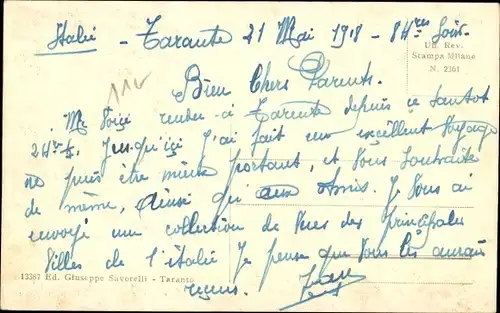 Italie - Tarante 21 Mai 1918 - 8 Hres Soir
Uff. Rev.
Stampa Milano
N. 2351
Bien Chers Parents.
Me Voiçi rendu à Tarente depuis ce tantot
2 Hres ½. Jusqu'içi J'ai fait un excéllent Voyage
ne puis être mieux portant, et Vous souhaite
de même, ainsi qu'aux Amis. Je Vous ai
envoyé une collection de Vues des principales
Villes de l'italie Je pense que Vous les aurais
reçus.
13387 Ed. Giuseppe Savorelli - Taranto